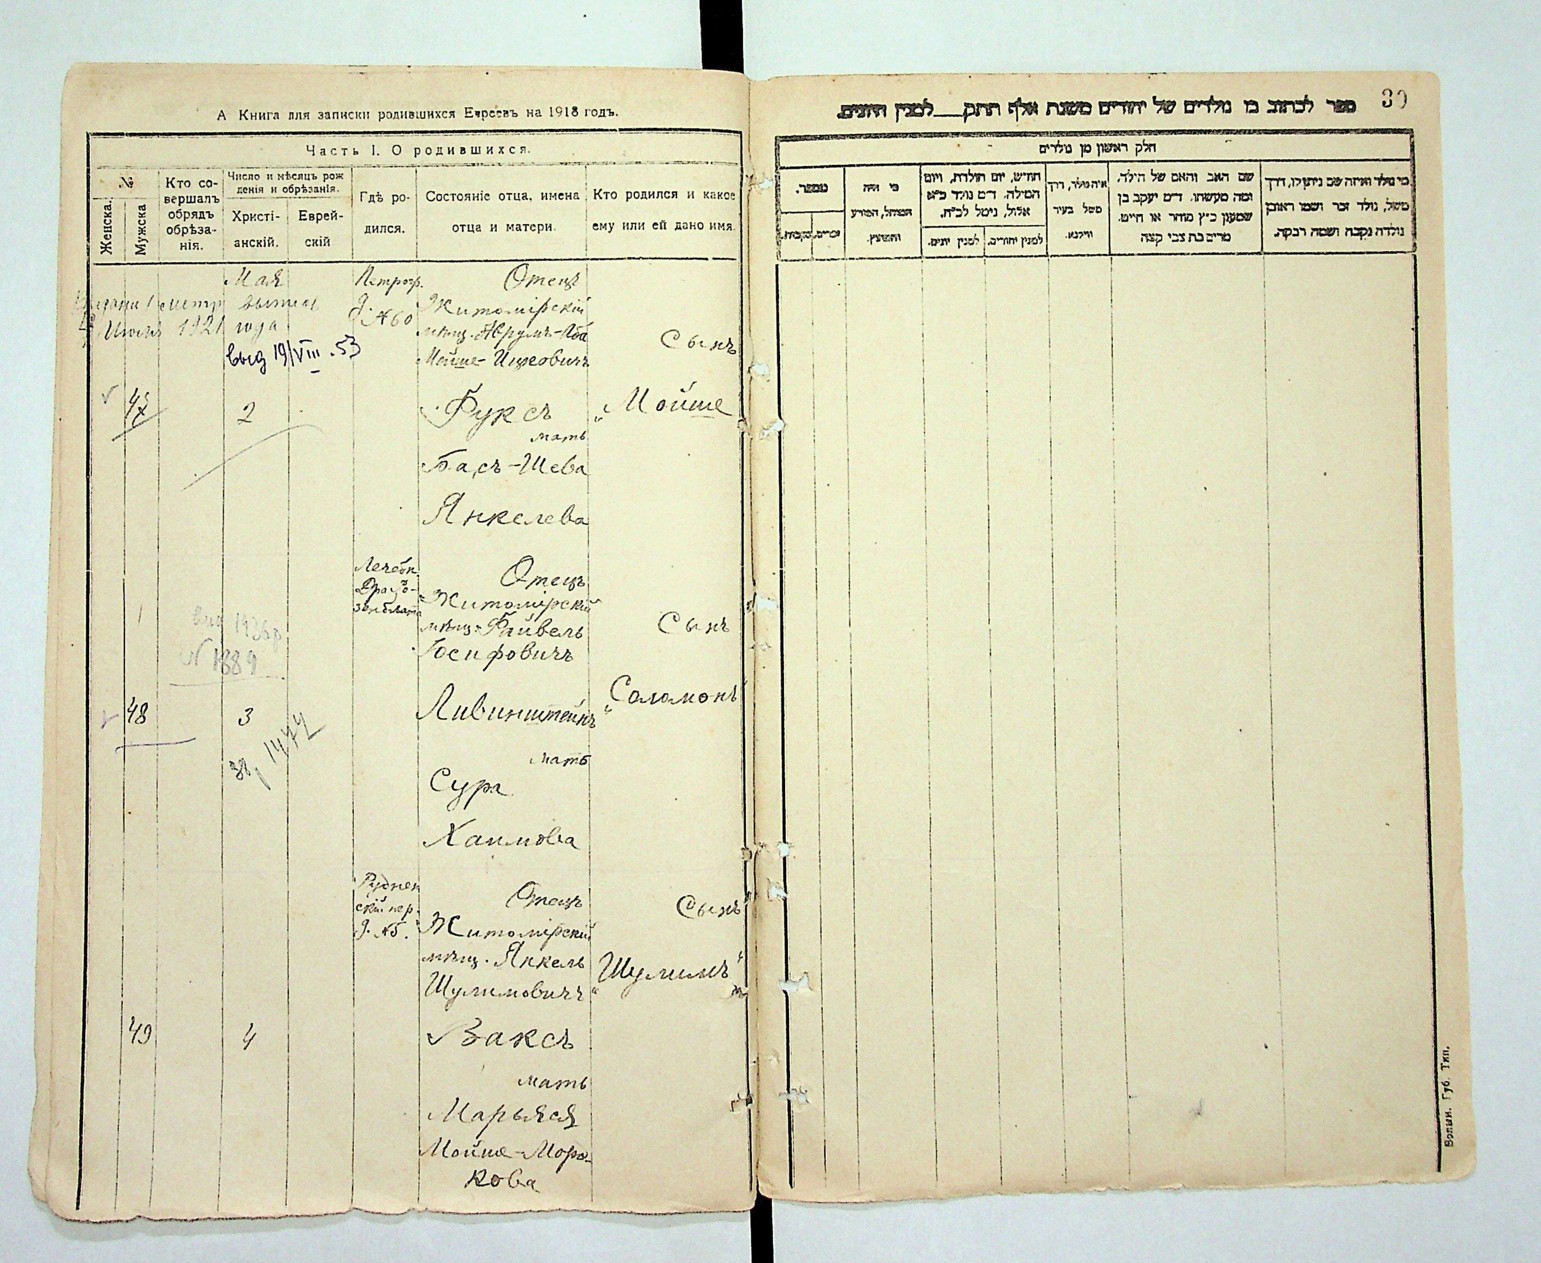 А Книга для записки родившихся Евреевъ на 1918 годъ.
Часть I. О родившихся.
№
Женска.
Мужска
Кто со-
вершалъ
обрядъ
обрѣза-
нія.
Число и мѣсяцъ рож
денія и обрѣзанія.
Христі-
анскій.
Еврей-
скій
Гдѣ ро-
дился.
Состояніе отца, имена
отца и матери.
Кто родился и какое
ему или ей дано имя.
Мая
1921 года
выд 19/VIII.53
47
2
Петрогр.
д. №60
Отецъ
Житомірскій
мѣщ. Аврумъ-Аба
Мойше-Ицковичъ
Фуксъ
мать
Басъ-Шева
Янкелева
Сынъ
„Мойше
48
3
выд 1936 г
N 1889
Лечебн.
Отецъ
Житомірскій
мѣщ. Файвель
Іосифовичъ
Ливинштейнъ
мать
Сура
Хаимова
Сынъ
„Соломонъ“
49
4
Руднен
скій пер.
д. №6.
Отецъ
Житомірскій
мѣщ. Янкель
Шулимовичъ
Ваксъ
мать
Марьяся
Мойше-Морд-
кова
Сынъ
„Шулимъ“
30
ספר לכתוב בו נולדים של יהודים משנת אלף תתק___למנין היונים.
חלק ראשון מן נולדים
נומבער.
נקבות.
זכרים.
מי היה
המוהל, הפורע
והמוצץ.
חודש, יום הולדת, ויום
המילה. ד״מ נולד כ״א
אלול, נימל לכ״ח.
למנין יונים.
למנין יהודים.
איה נולד, דרך
משל בעיר
ווילנא.
שם האב והאם של הילד.
ומה מעשהו. ד״מ יעקב בן
שמעון כ״ץ סוחר או חייט.
מרים בת צבי קצה
מי נולד ואיזה שם ניתן לו, דרך
משל, נולד זכר ושמו ראובן
נולדה נקבה ושמה רבקה.
Волын. Губ. Тип.